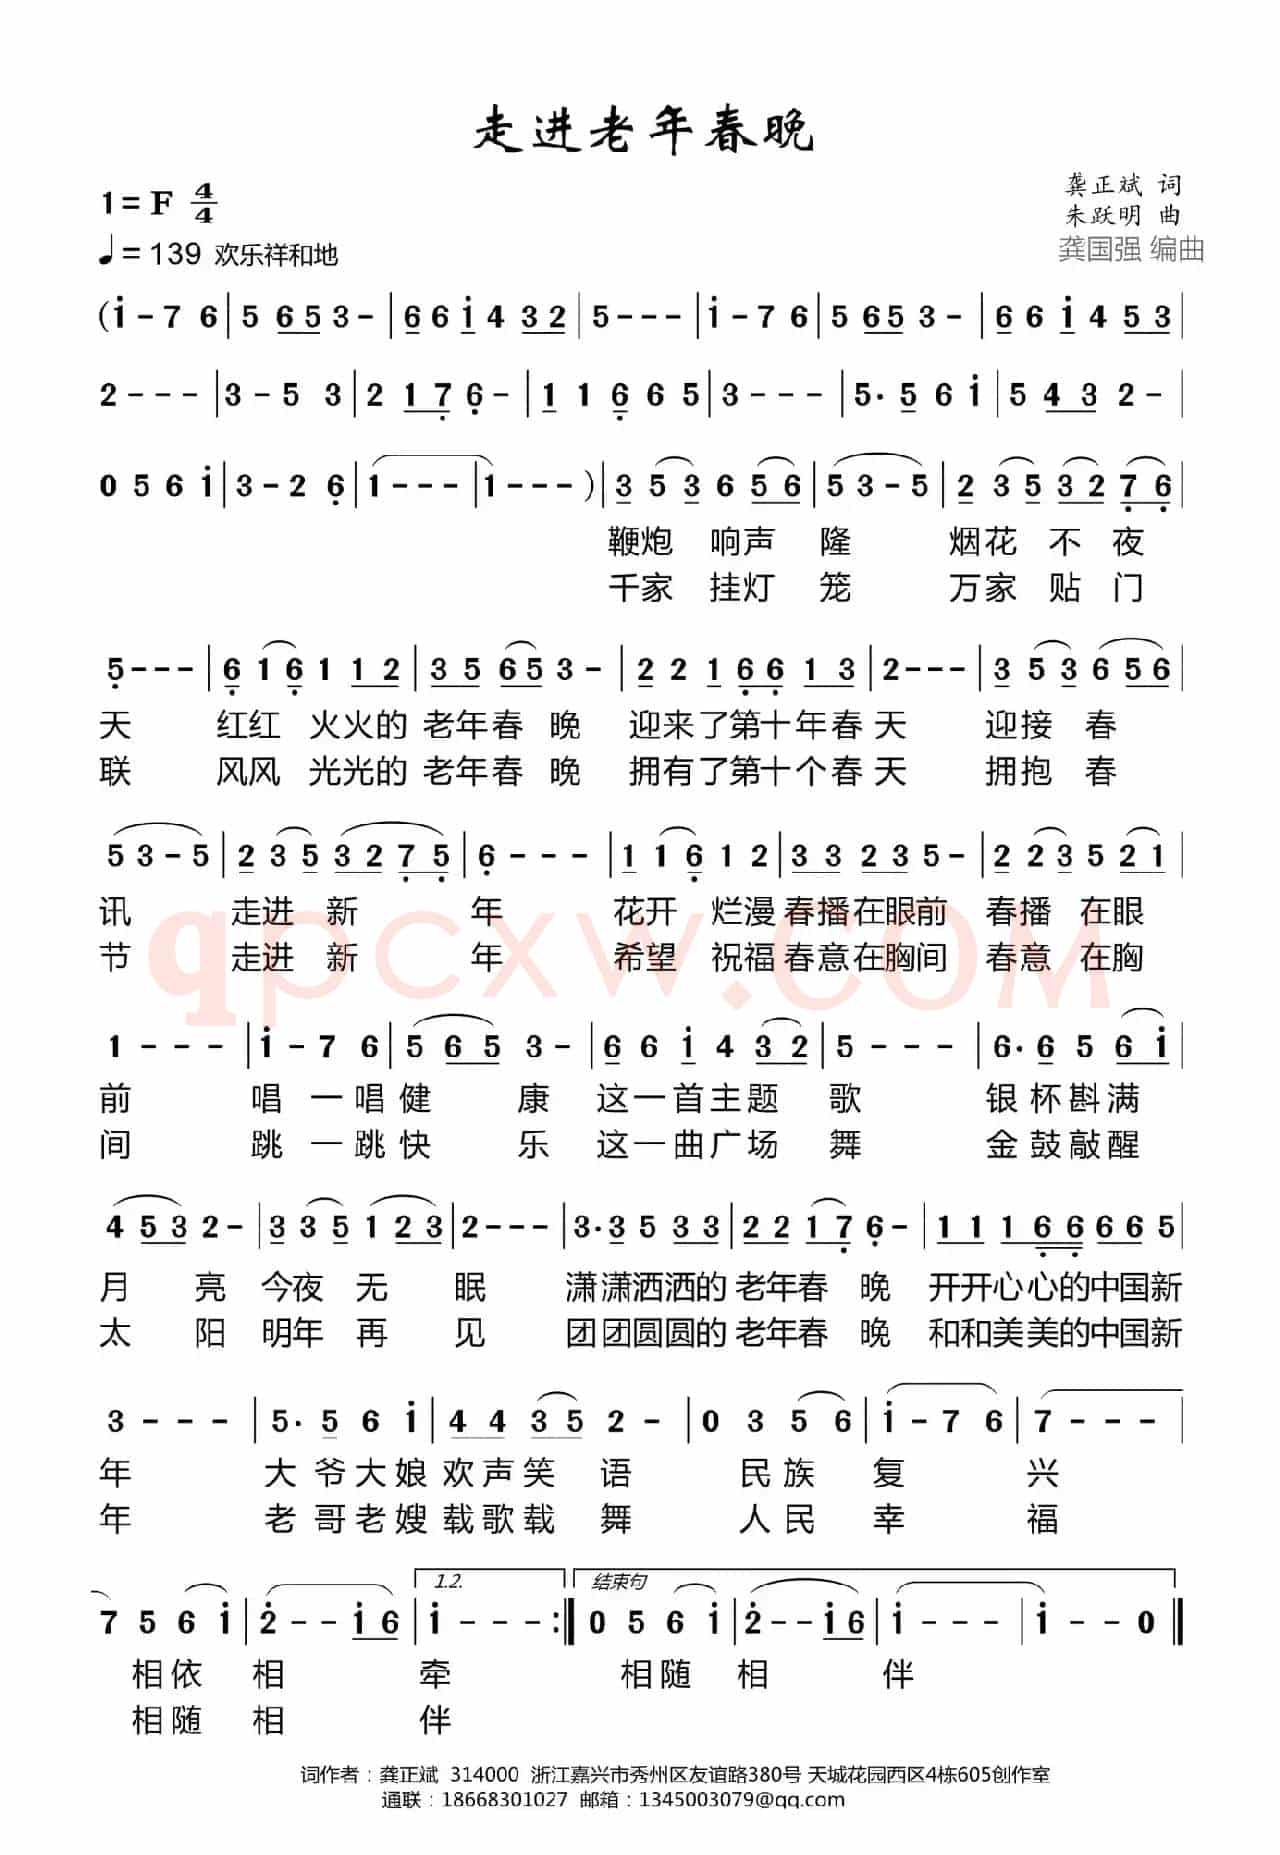 走进老年春晚
1=F 4/4
龚正斌 词
朱跃明 曲
♩=139 欢乐祥和地
龚国强 编曲
(i - 7 6 | 5 6 5 3 - | 6 6 i 4 3 2 | 5 - - - | i - 7 6 | 5 6 5 3 - | 6 6 i 4 5 3 |
2 - - - | 3 - 5 3 | 2 1 7 6 - | 1 1 6 6 5 | 3 - - - | 5. 5 6 i | 5 4 3 2 - |
0 5 6 i | 3 - 2 6 | 1 - - - | 1 - - - ) | 3 5 3 6 5 6 | 5 3 - 5 | 2 3 5 3 2 7 6 |
鞭炮 响声 隆 烟花 不 夜
千家 挂灯 笼 万家 贴 门
5 - - - | 6 1 6 1 1 2 | 3 5 6 5 3 - | 2 2 1 6 6 1 3 | 2 - - - | 3 5 3 6 5 6 |
天 红红 火火的 老年春 晚 迎来了第十年春天 迎接 春
联 风风 光光的 老年春 晚 拥有了第十个春天 拥抱 春
5 3 - 5 | 2 3 5 3 2 7 5 | 6 - - - | 1 1 6 1 2 | 3 3 2 3 5 - | 2 2 3 5 2 1 |
讯 走进 新 年 花开 烂漫春播在眼前 春播 在眼
节 走进 新 年 希望 祝福春意在胸间 春意 在胸
qpcxw.COM
1 - - - | i - 7 6 | 5 6 5 3 - | 6 6 i 4 3 2 | 5 - - - | 6. 6 5 6 i |
前 唱一唱健 康 这一首主题 歌 银杯斟满
间 跳一跳快 乐 这一曲广场 舞 金鼓敲醒
4 5 3 2 - | 3 3 5 1 2 3 | 2 - - - | 3. 3 5 3 3 | 2 2 1 7 6 - | 1 1 1 6 6 6 6 5 |
月 亮 今夜 无 眠 潇潇洒洒的 老年春 晚 开开心心的中国新
太 阳 明年 再 见 团团圆圆的 老年春 晚 和和美美的中国新
3 - - - | 5. 5 6 i | 4 4 3 5 2 - | 0 3 5 6 | i - 7 6 | 7 - - - |
年 大爷大娘 欢声笑 语 民族 复 兴
年 老哥老嫂 载歌载 舞 人民 幸 福
1.2. 结束句
7 5 6 i | 2 - - i 6 | i - - - :‖ 0 5 6 i | 2 - - i 6 | i - - - | i - - 0 ‖
相依 相 牵 相随 相 伴
相随 相 伴
词作者：龚正斌 314000 浙江嘉兴市秀州区友谊路380号 天城花园西区4栋605创作室
通联：18668301027 邮箱：1345003079@qq.com